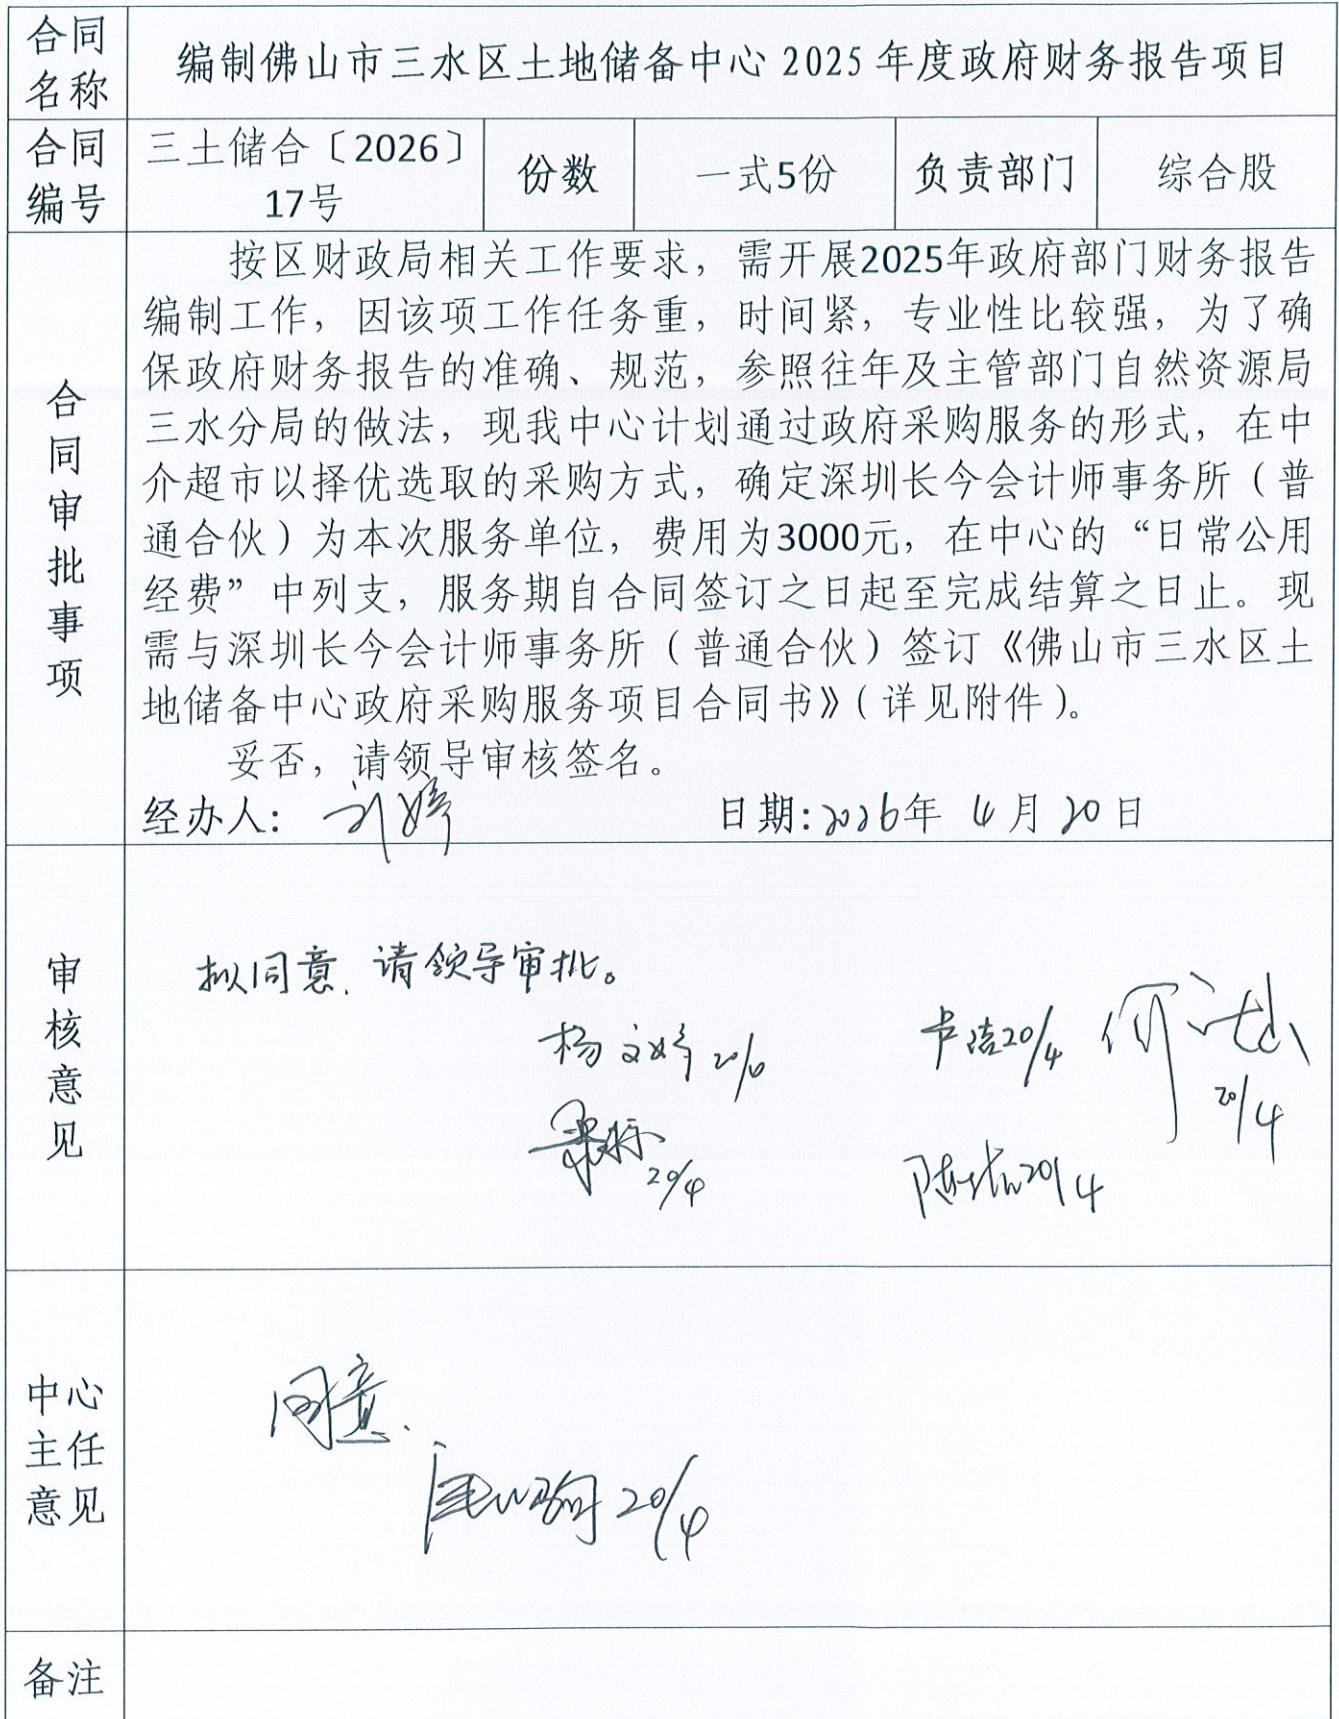 合同名称
编制佛山市三水区土地储备中心 2025 年度政府财务报告项目
合同编号
三土储合〔2026〕
17号
份数
一式5份
负责部门
综合股
合同审批事项
按区财政局相关工作要求，需开展2025年政府部门财务报告
编制工作，因该项工作任务重，时间紧，专业性比较强，为了确
保政府财务报告的准确、规范，参照往年及主管部门自然资源局
三水分局的做法，现我中心计划通过政府采购服务的形式，在中
介超市以择优选取的采购方式，确定深圳长今会计师事务所（普
通合伙）为本次服务单位，费用为3000元，在中心的“日常公用
经费”中列支，服务期自合同签订之日起至完成结算之日止。现
需与深圳长今会计师事务所（普通合伙）签订《佛山市三水区土
地储备中心政府采购服务项目合同书》（详见附件）。
妥否，请领导审核签名。
经办人：刘婷 日期：2026年 4月20日
审核意见
拟同意，请领导审批。
杨文婷
卢洁20/4
20/4
20/4
20/4
中心主任意见
同意.
20/4
备注